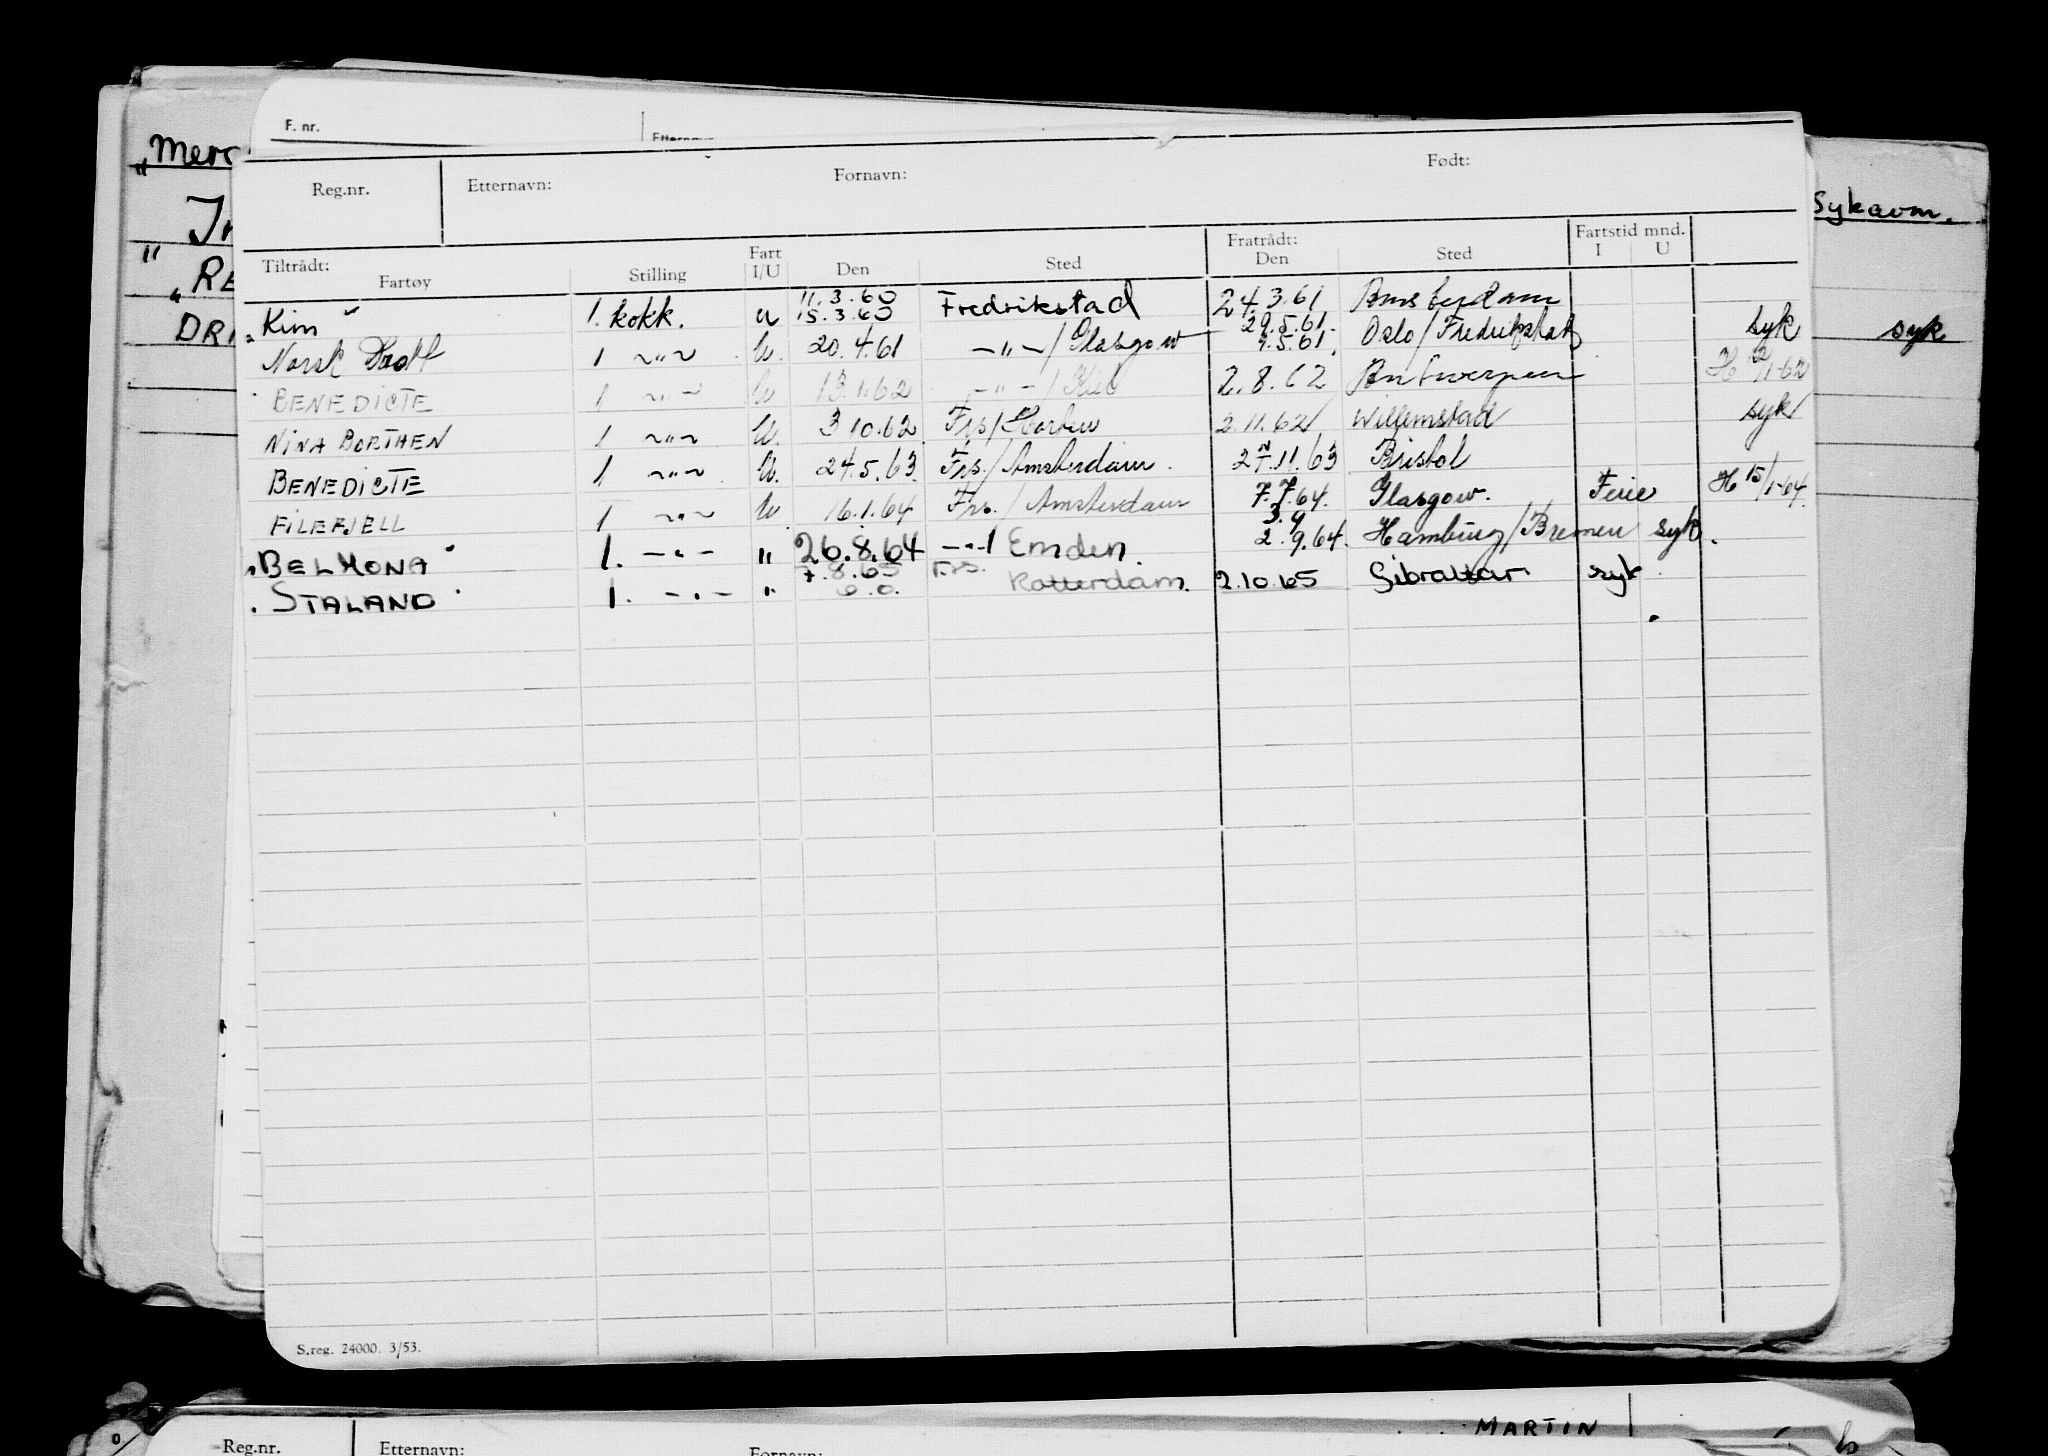 F. nr.
Etternavn
„Merc
Reg.nr. Etternavn: Fornavn: Født:
Sykavm.
„
Tiltrådt: Fart Fratrådt: Fartstid mnd.
Fartøy Stilling I/U Den Sted Den Sted I U
11.3.60
„Kim" 1. kokk. u 15.3.60 Fredrikstad 24.3.61 Amsterdam
29.5.61
Norsk Drott 1 -"- U. 20.4.61 -"-/Glasgow 9.5.61 Oslo/Fredrikstad syk syk
BENEDICTE 1 -"- U 13.1.62 -"-/Kiel 2.8.62 Antwerpen H 12/1-62
NINA BORTHEN 1 -"- U. 3.10.62 Frs/ 2.11.62 Willemstad syk
BENEDICTE 1 -"- U. 24.5.63 Frs./Amsterdam. 27.11.63 Bristol
FILEFJELL 1 -"- U. 16.1.64 Frs./Amsterdam 7.7.64. Glasgow. Ferie H 15/1-64.
3.9
„BELMONA" 1. -"- " 26.8.64 -"-/ Emden. 2.9.64. Hamburg/Bremen syk.
7.8.65 Frs.
„STALAND" 1. -"- " Rotterdam. 2.10.65 Gibraltar syk.
S.reg. 24000. 3/53.
MARTIN
Reg.nr. Etternavn: Fornavn: